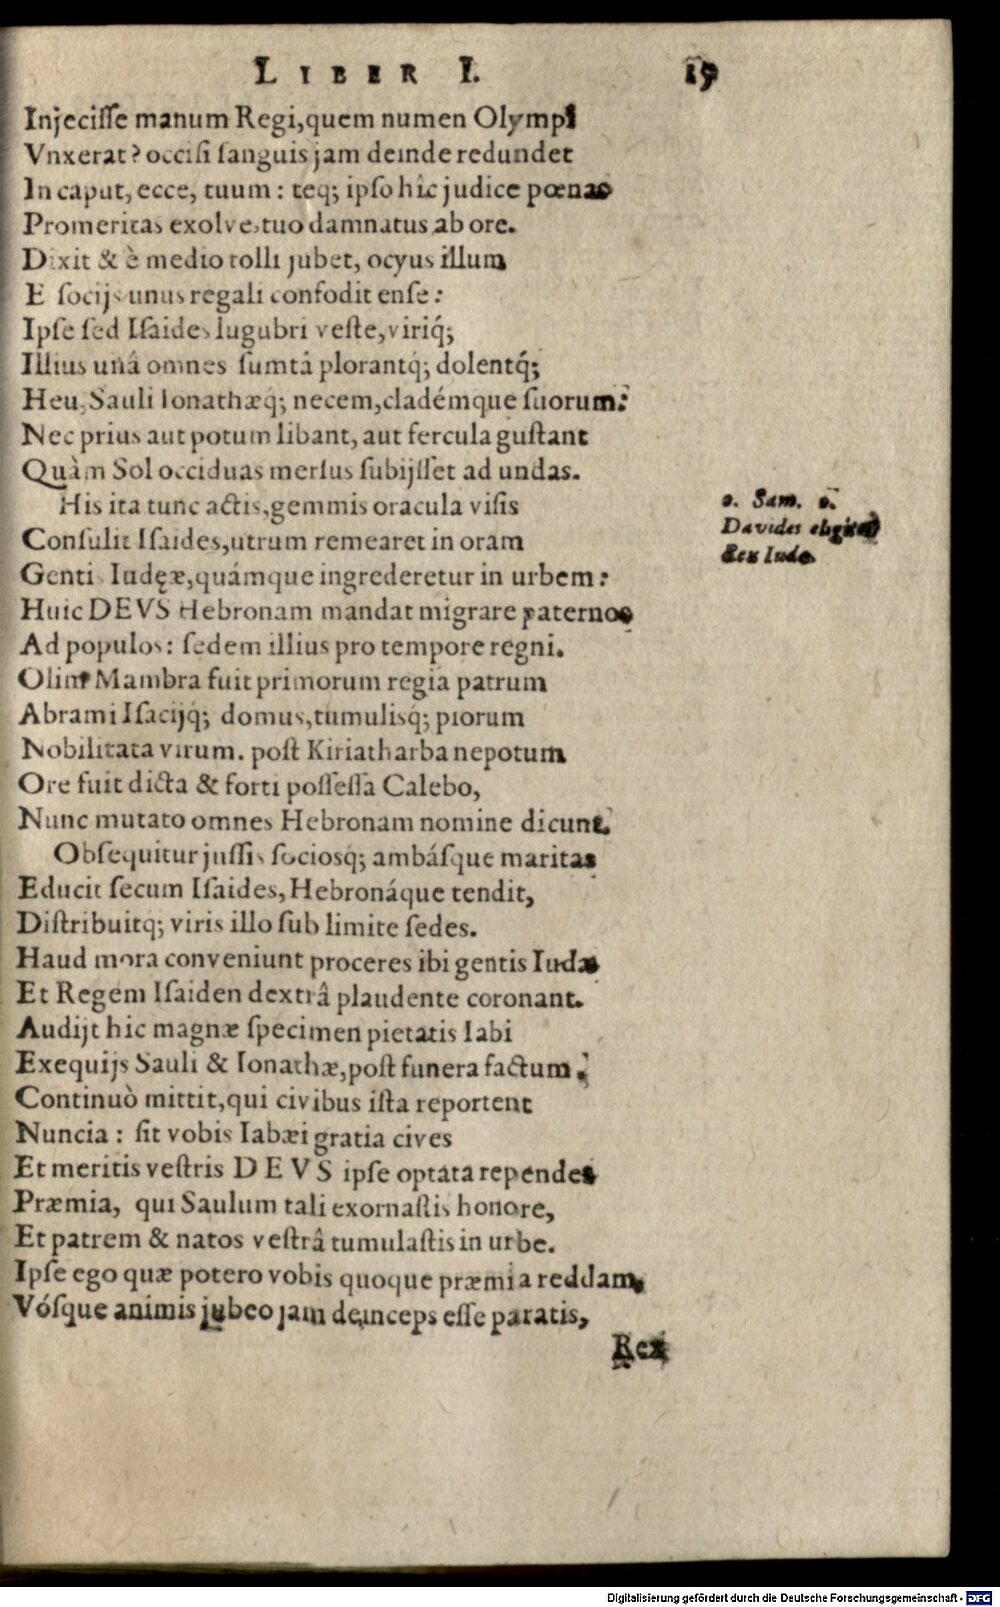 LIBER I. 19
Injecisse manum Regi, quem numen Olympi
Vnxerat? occisi sanguis jam deinde redundet
In caput, ecce, tuum: teq; ipso hîc judice pœnas
Promeritas exolves tuo damnatus ab ore.
Dixit & è medio tolli jubet, ocyus illum
E socijs unus regali confodit ense:
Ipse sed Isaides lugubri veste, viriq́;
Illius unâ omnes sumtâ plorantq́; dolentq́;
Heu, Sauli Ionathæq́; necem, cladémque suorum:
Nec prius aut potum libant, aut fercula gustant
Quàm Sol occiduas mersus subijsset ad undas.
His ita tunc actis, gemmis oracula visis
Consulit Isaides, utrum remearet in oram
Gentis Iudęæ, quámque ingrederetur in urbem:
Huic DEVS Hebronam mandat migrare paternos
Ad populos: sedem illius pro tempore regni.
Olim Mambra fuit primorum regia patrum
Abrami Isacijq́; domus, tumulisq́; piorum
Nobilitata virum. post Kiriatharba nepotum
Ore fuit dicta & forti possessa Calebo,
Nunc mutato omnes Hebronam nomine dicunt.
Obsequitur jussis sociosq́; ambásque maritas
Educit secum Isaides, Hebronáque tendit,
Distribuitq; viris illo sub limite sedes.
Haud mora conveniunt proceres ibi gentis Iudæ
Et Regem Isaiden dextrâ plaudente coronant.
Audijt hic magnæ specimen pietatis Iabi
Exequijs Sauli & Ionathæ, post funera factum;
Continuò mittit, qui civibus ista reportent
Nuncia: sit vobis Iabæi gratia cives
Et meritis vestris DEVS ipse optata rependet
Præmia, qui Saulum tali exornastis honore,
Et patrem & natos vestrâ tumulastis in urbe.
Ipse ego quæ potero vobis quoque præmia reddam,
Vósque animis jubeo jam deinceps esse paratis,
Rex
2. Sam. 2.
Davides eligitur
Rex Iudæ
Digitalisierung gefördert durch die Deutsche Forschungsgemeinschaft - DFG